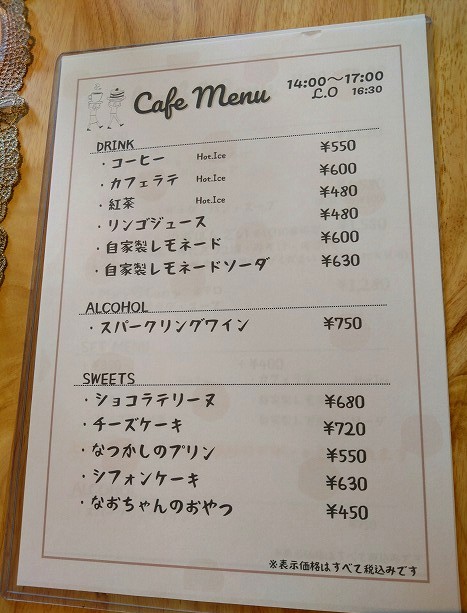 Cafe Menu 14:00〜17:00
L.O 16:30
DRINK
・コーヒー Hot.Ice ¥550
・カフェラテ Hot.Ice ¥600
・紅茶 Hot.Ice ¥480
・リンゴジュース ¥480
・自家製レモネード ¥600
・自家製レモネードソーダ ¥630
ALCOHOL
・スパークリングワイン ¥750
SWEETS
・ショコラテリーヌ ¥680
・チーズケーキ ¥720
・なつかしのプリン ¥550
・シフォンケーキ ¥630
・なおちゃんのおやつ ¥450
※表示価格はすべて税込みです